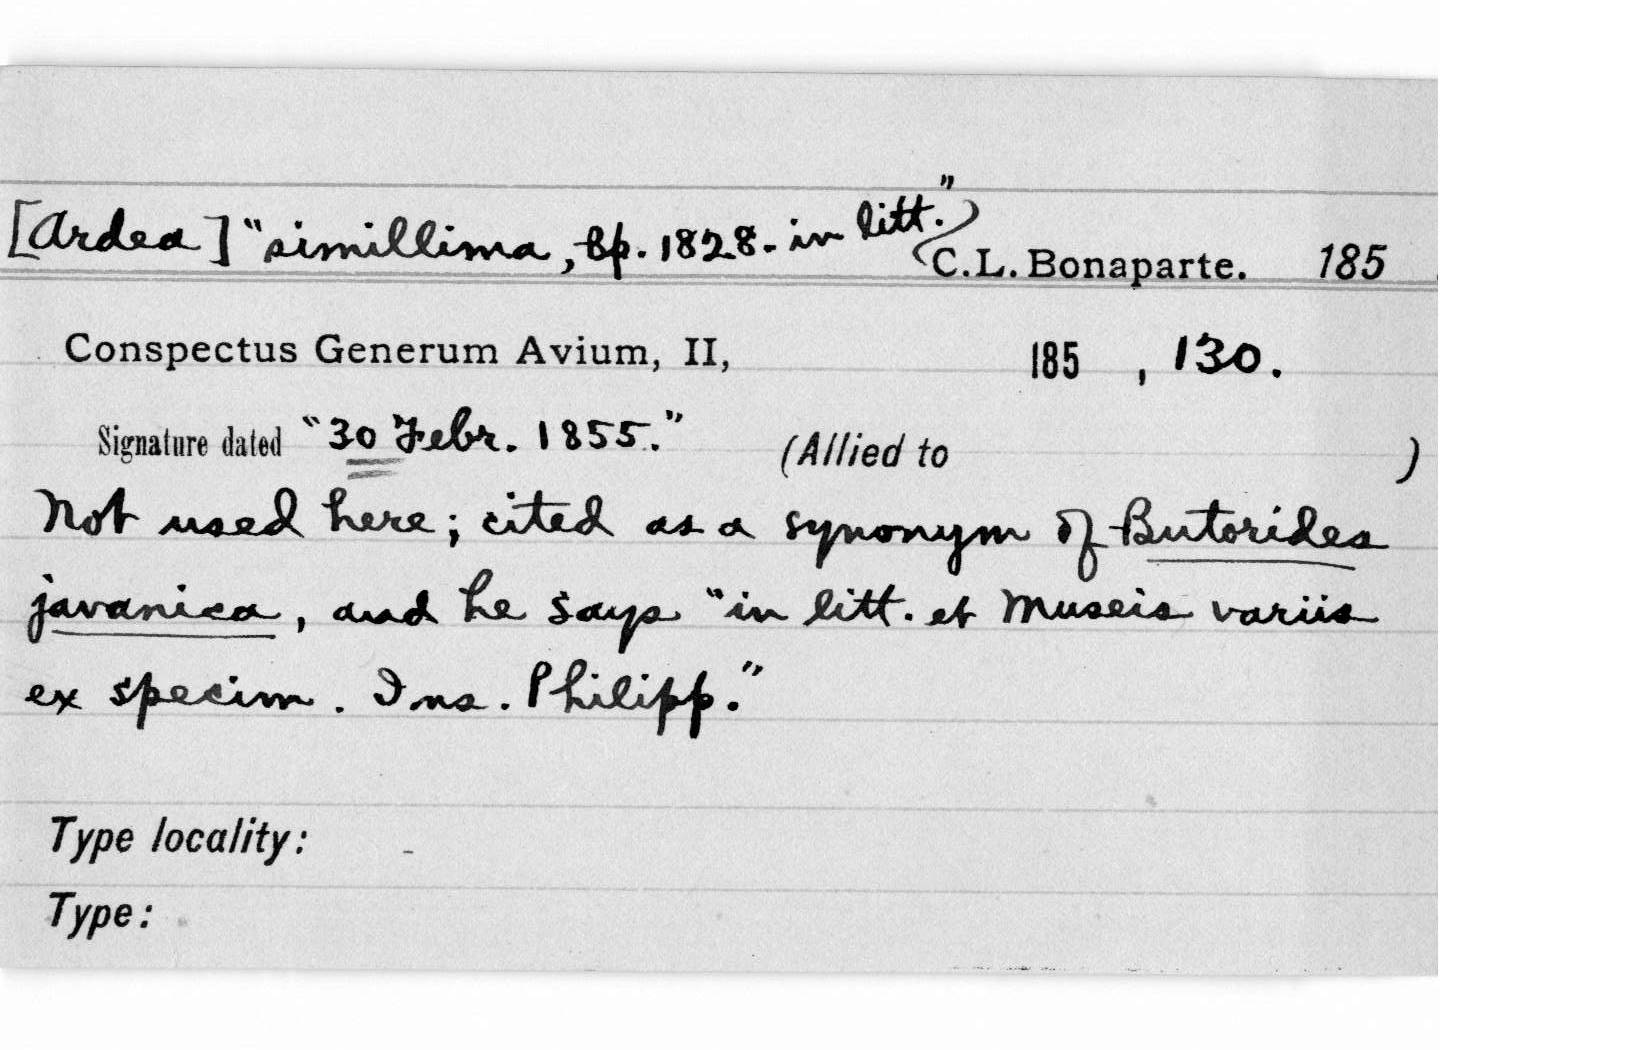 [Ardea] "simillima, Bp. 1828. in litt." C.L. Bonaparte. 185
Conspectus Generum Avium, II, 185 , 130.
Signature dated "30 Febr. 1855." (Allied to )
Not used here; cited as a synonym of Butorides
javanica, and he says "in litt. et Museis variis
ex specim. Ins. Philipp."
Type locality: -
Type: